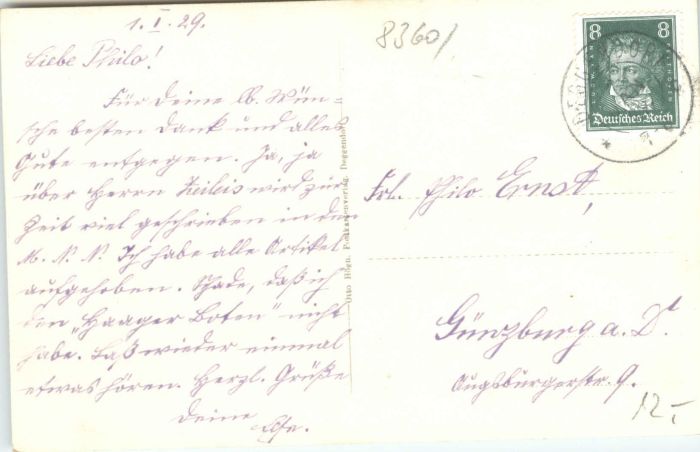 1. I. 29.
Liebe Philo!
Für Deine lb. Wün-
sche besten Dank und alles
Gute entgegen. Ja, ja
über Herrn Zeileis wird zur
Zeit viel geschrieben in den
M. N. N. Ich habe alle Artikel
aufgehoben. Schade, daß ich
den „Haager Boten" nicht
habe. Laß wieder einmal
etwas hören. Herzl. Grüße
Deine
8360/
Otto Högn, Postkartenverlag, Deggendorf
8 8
LUDWIG VAN BEETHOVEN
Deutsches Reich
Frl. Philo Ernst,
Günzburg a. D.
Augsburgerstr. 9.
12,-